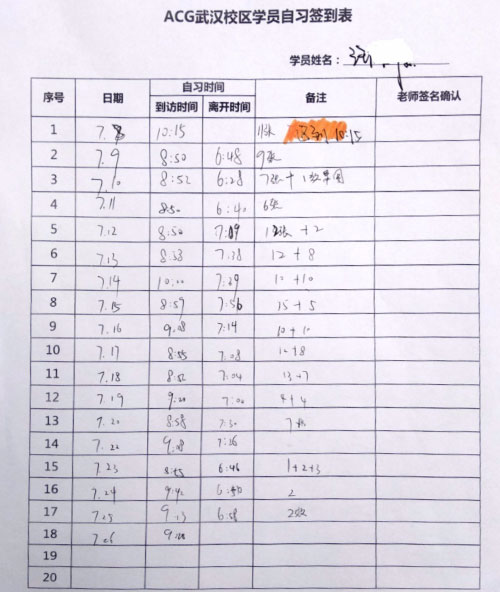 ACG武汉校区学员自习签到表
学员姓名：
序号 日期 自习时间 备注 老师签名确认
到访时间 离开时间
1 7.8 10:15 11张 迟到 10:15
2 7.9 8:50 6:48 9张
3 7.10 8:52 6:28 7张+1
4 7.11 8:50 6:40 6张
5 7.12 8:50 7:09 +2
6 7.13 8:33 7:28 12+8
7 7.14 10:00 7:29 10+10
8 7.15 8:59 7:56 15+5
9 7.16 9:08 7:14 10+10
10 7.17 8:55 7:08 10+8
11 7.18 8:52 7:04 13+7
12 7.19 9:20 7:00 4+4
13 7.20 8:58 7:30 7张
14 7.22 9:08 7:26
15 7.23 8:55 6:46 1+2+3
16 7.24 9:42 6:50 2
17 7.25 9:13 6:58 2张
18 7.26 9:00
19
20